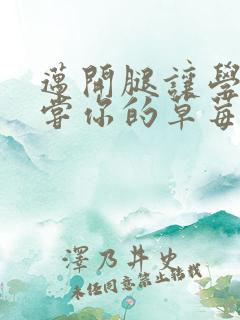 邁開腿讓學
嘗你的草莓
澤乃井史
未经同意禁止转载